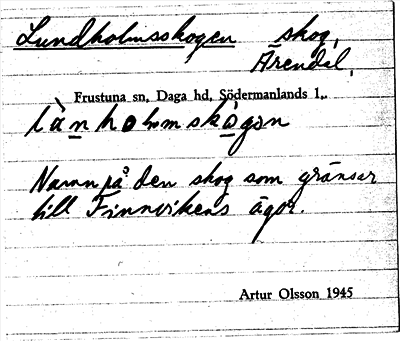 Lundholmsskogen skog,
Ärendal,
Frustuna sn, Daga hd, Södermanlands l,.
lànholmskògən
Namn på den skog som gränsar
till Finnvikens ägor.
Artur Olsson 1945